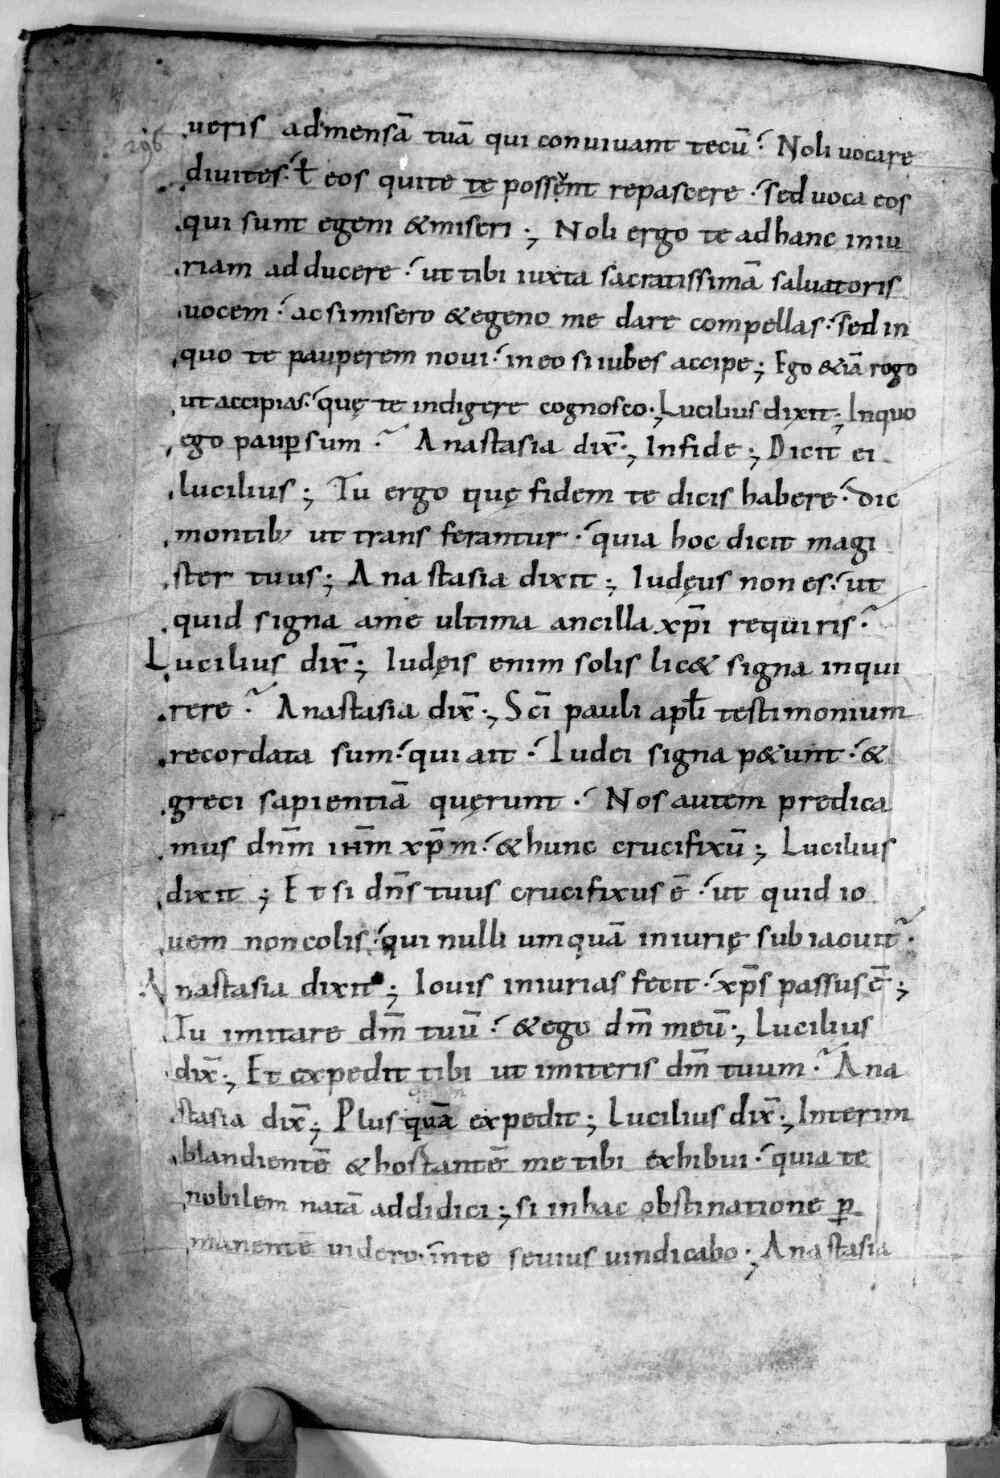 296
ueris admensā tuā qui conuiuant tecū. Noli uocare
diuites. ł eos qui te te possent repascere. sed uoca eos
qui sunt egeni & miseri; Noli ergo te ad hanc iniu
riam adducere. ut tibi iuxta sacratissimā saluatoris
uocem. ac si misero & egeno me dare compellas. sed in
quo te pauperem noui. in eo si iubes accipe; Ego &iā rogo
ut accipias. quę te indigere cognosco; Lucilius dixit; In quo
ego paup̱ sum. Anastasia dix̄; In fide; Dicit ei
lucilius; Tu ergo quę fidem te dicis habere. dic
montib; ut transferantur. quia hoc dicit magi
ster tuus; Anastasia dixit; Iudęus non es. ut
quid signa a me ultima ancilla xp̄i requiris.
Lucilius dix̄; Iudęis enim solis lic& signa inqui
rere. Anastasia dix̄; Sc̄i pauli apl̄i testimonium
recordata sum. qui ait. Iudei signa p&unt. &
greci sapientiā quęrunt. Nos autem predica
mus dn̄m ih̄m xp̄m. & hunc crucifixū; Lucilius
dixit; Et si dn̄s tuus crucifixus ē. ut quid io
uem non colis. qui nulli umquā iniurię subiacuit.
Anastasia dixit; Iouis iniurias fecit. xp̄s passus ē;
Tu imitare dm̄ tuū. & ego dm̄ meū; Lucilius
dix̄; Et expedit tibi ut imiteris dm̄ tuum. Ana
stasia dix̄; Plus quā expedit; Lucilius dix̄; Interim
blandientē & hostantē me tibi exhibui. quia te
nobilem natā addidici; si in hac obstinatione p̱
manentē uidero. in te seuius uindicabo; Anastasia